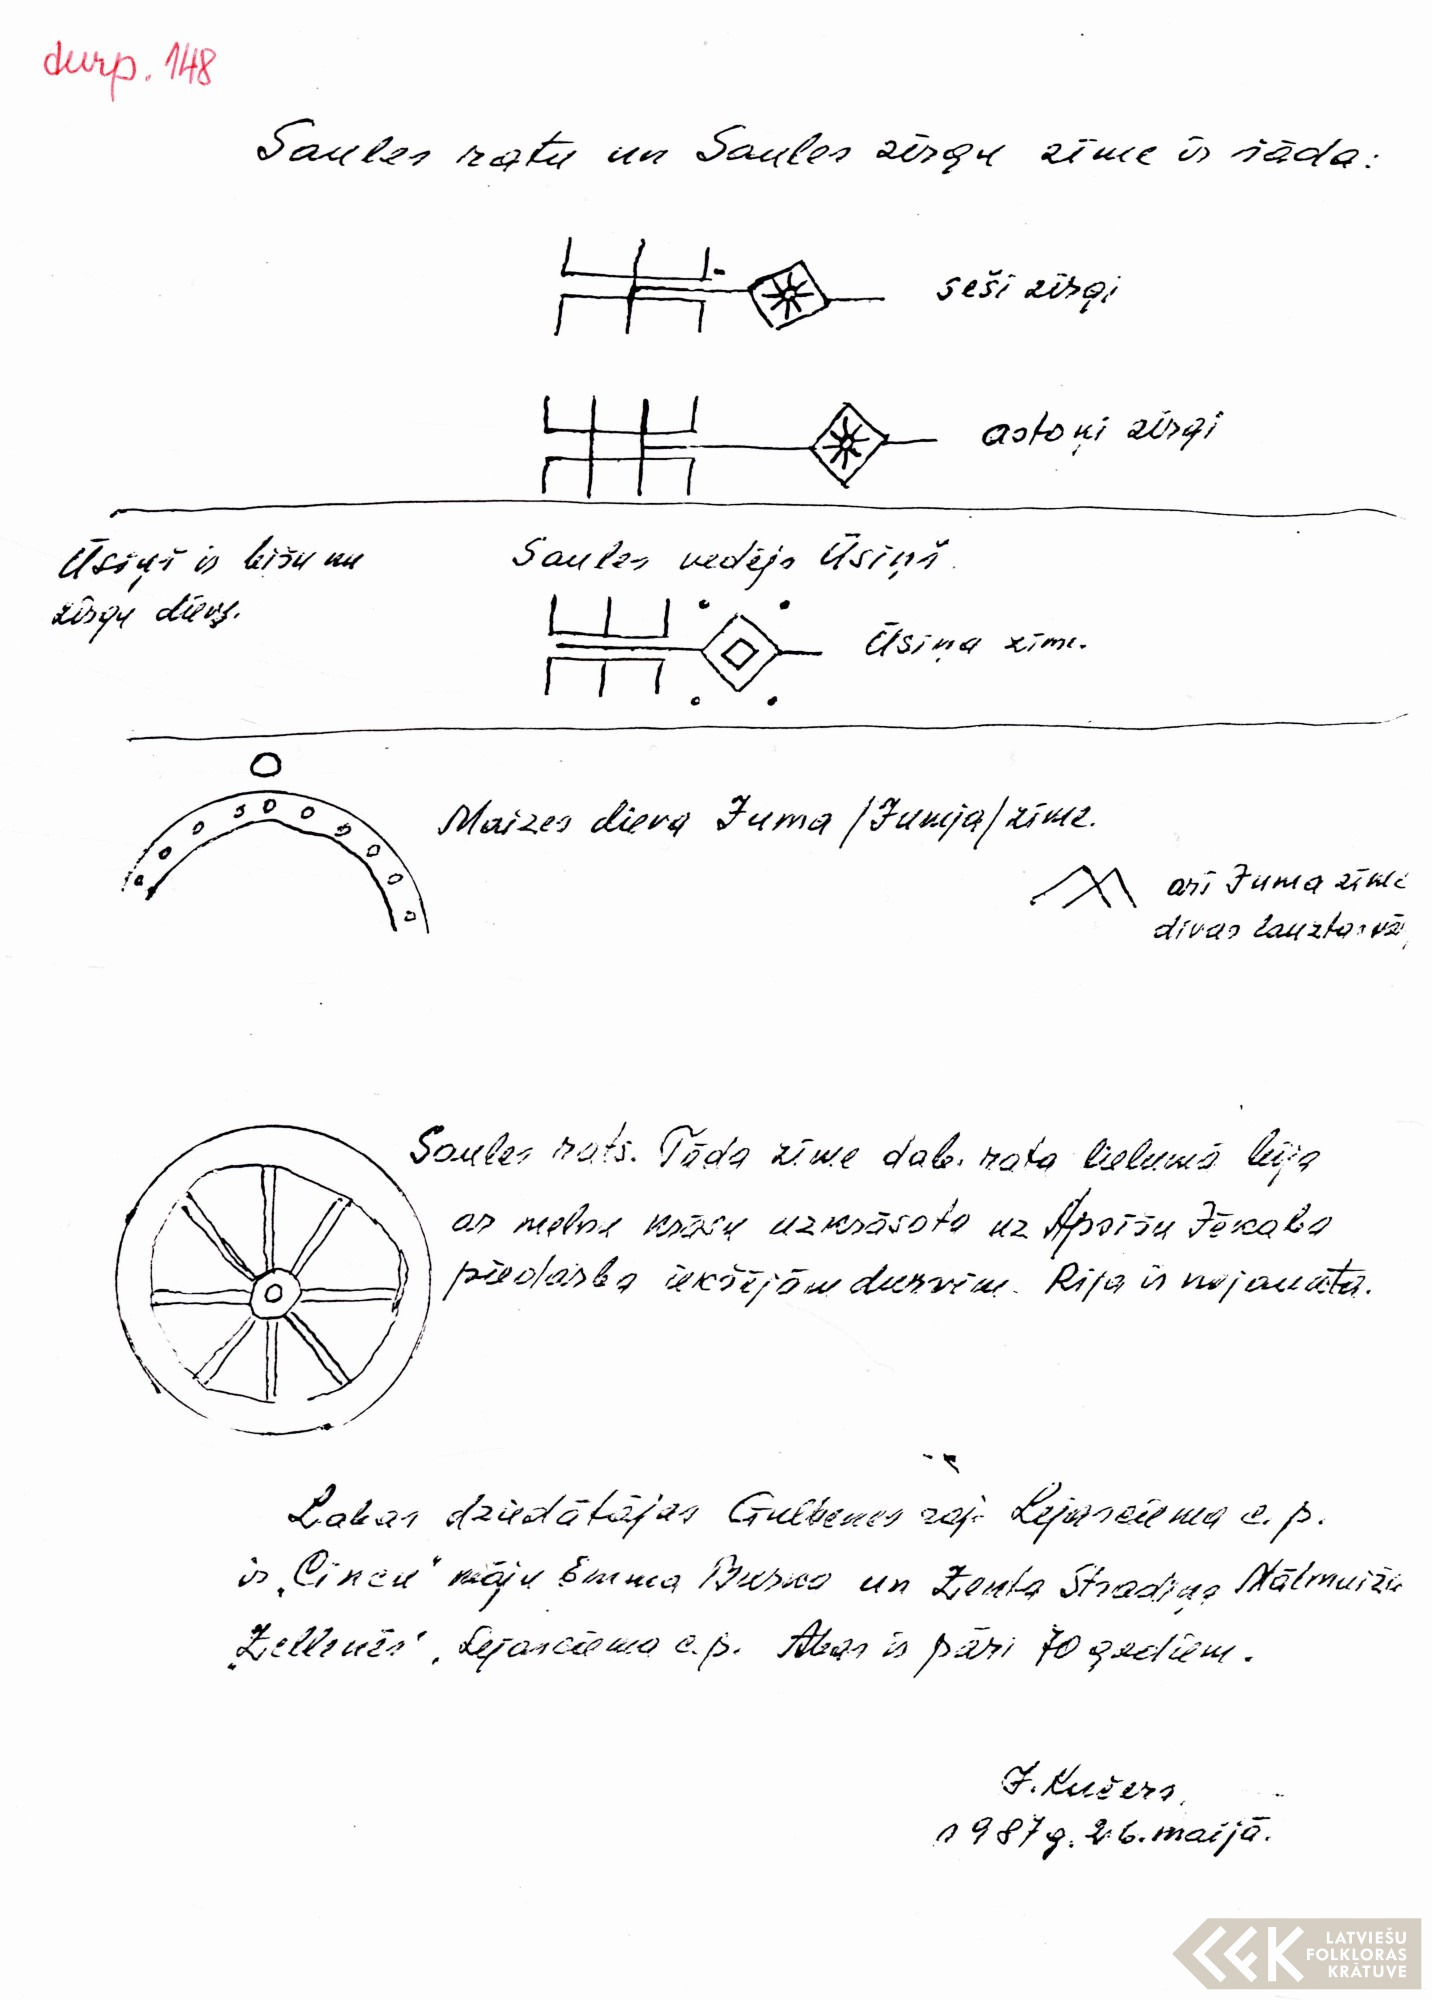 durp. 148
Saules ratu un Saules zirgu zīme ir šāda:
seši zirgi
astoņi zirgi
Ūsiņš ir bišu un
zirgu dievs.
Saules vedējs Ūsiņš.
Ūsiņa zīme.
Maizes dieva Juma /Jumja/ zīme.
arī Juma zīme
divas lauztas
Saules rats. Tāda zīme dab. rata lielumā bija
ar melnu krāsu uzkrāsota uz Apsīšu Jēkaba
piedarba iekšējām durvīm. Rija ir nojaukta.
Labas dziedātājas Gulbenes raj. Lejasciema c.p.
ir "Cincu" māju Emma Burko un Zenta Stradiņa Mālmuižu
"Zellenēs", Lejasciema c.p. Abas ir pāri 70 gadiem.
J. Kučers.
1987 g. 26. maijā.
LATVIEŠU
FOLKLORAS
KRĀTUVE